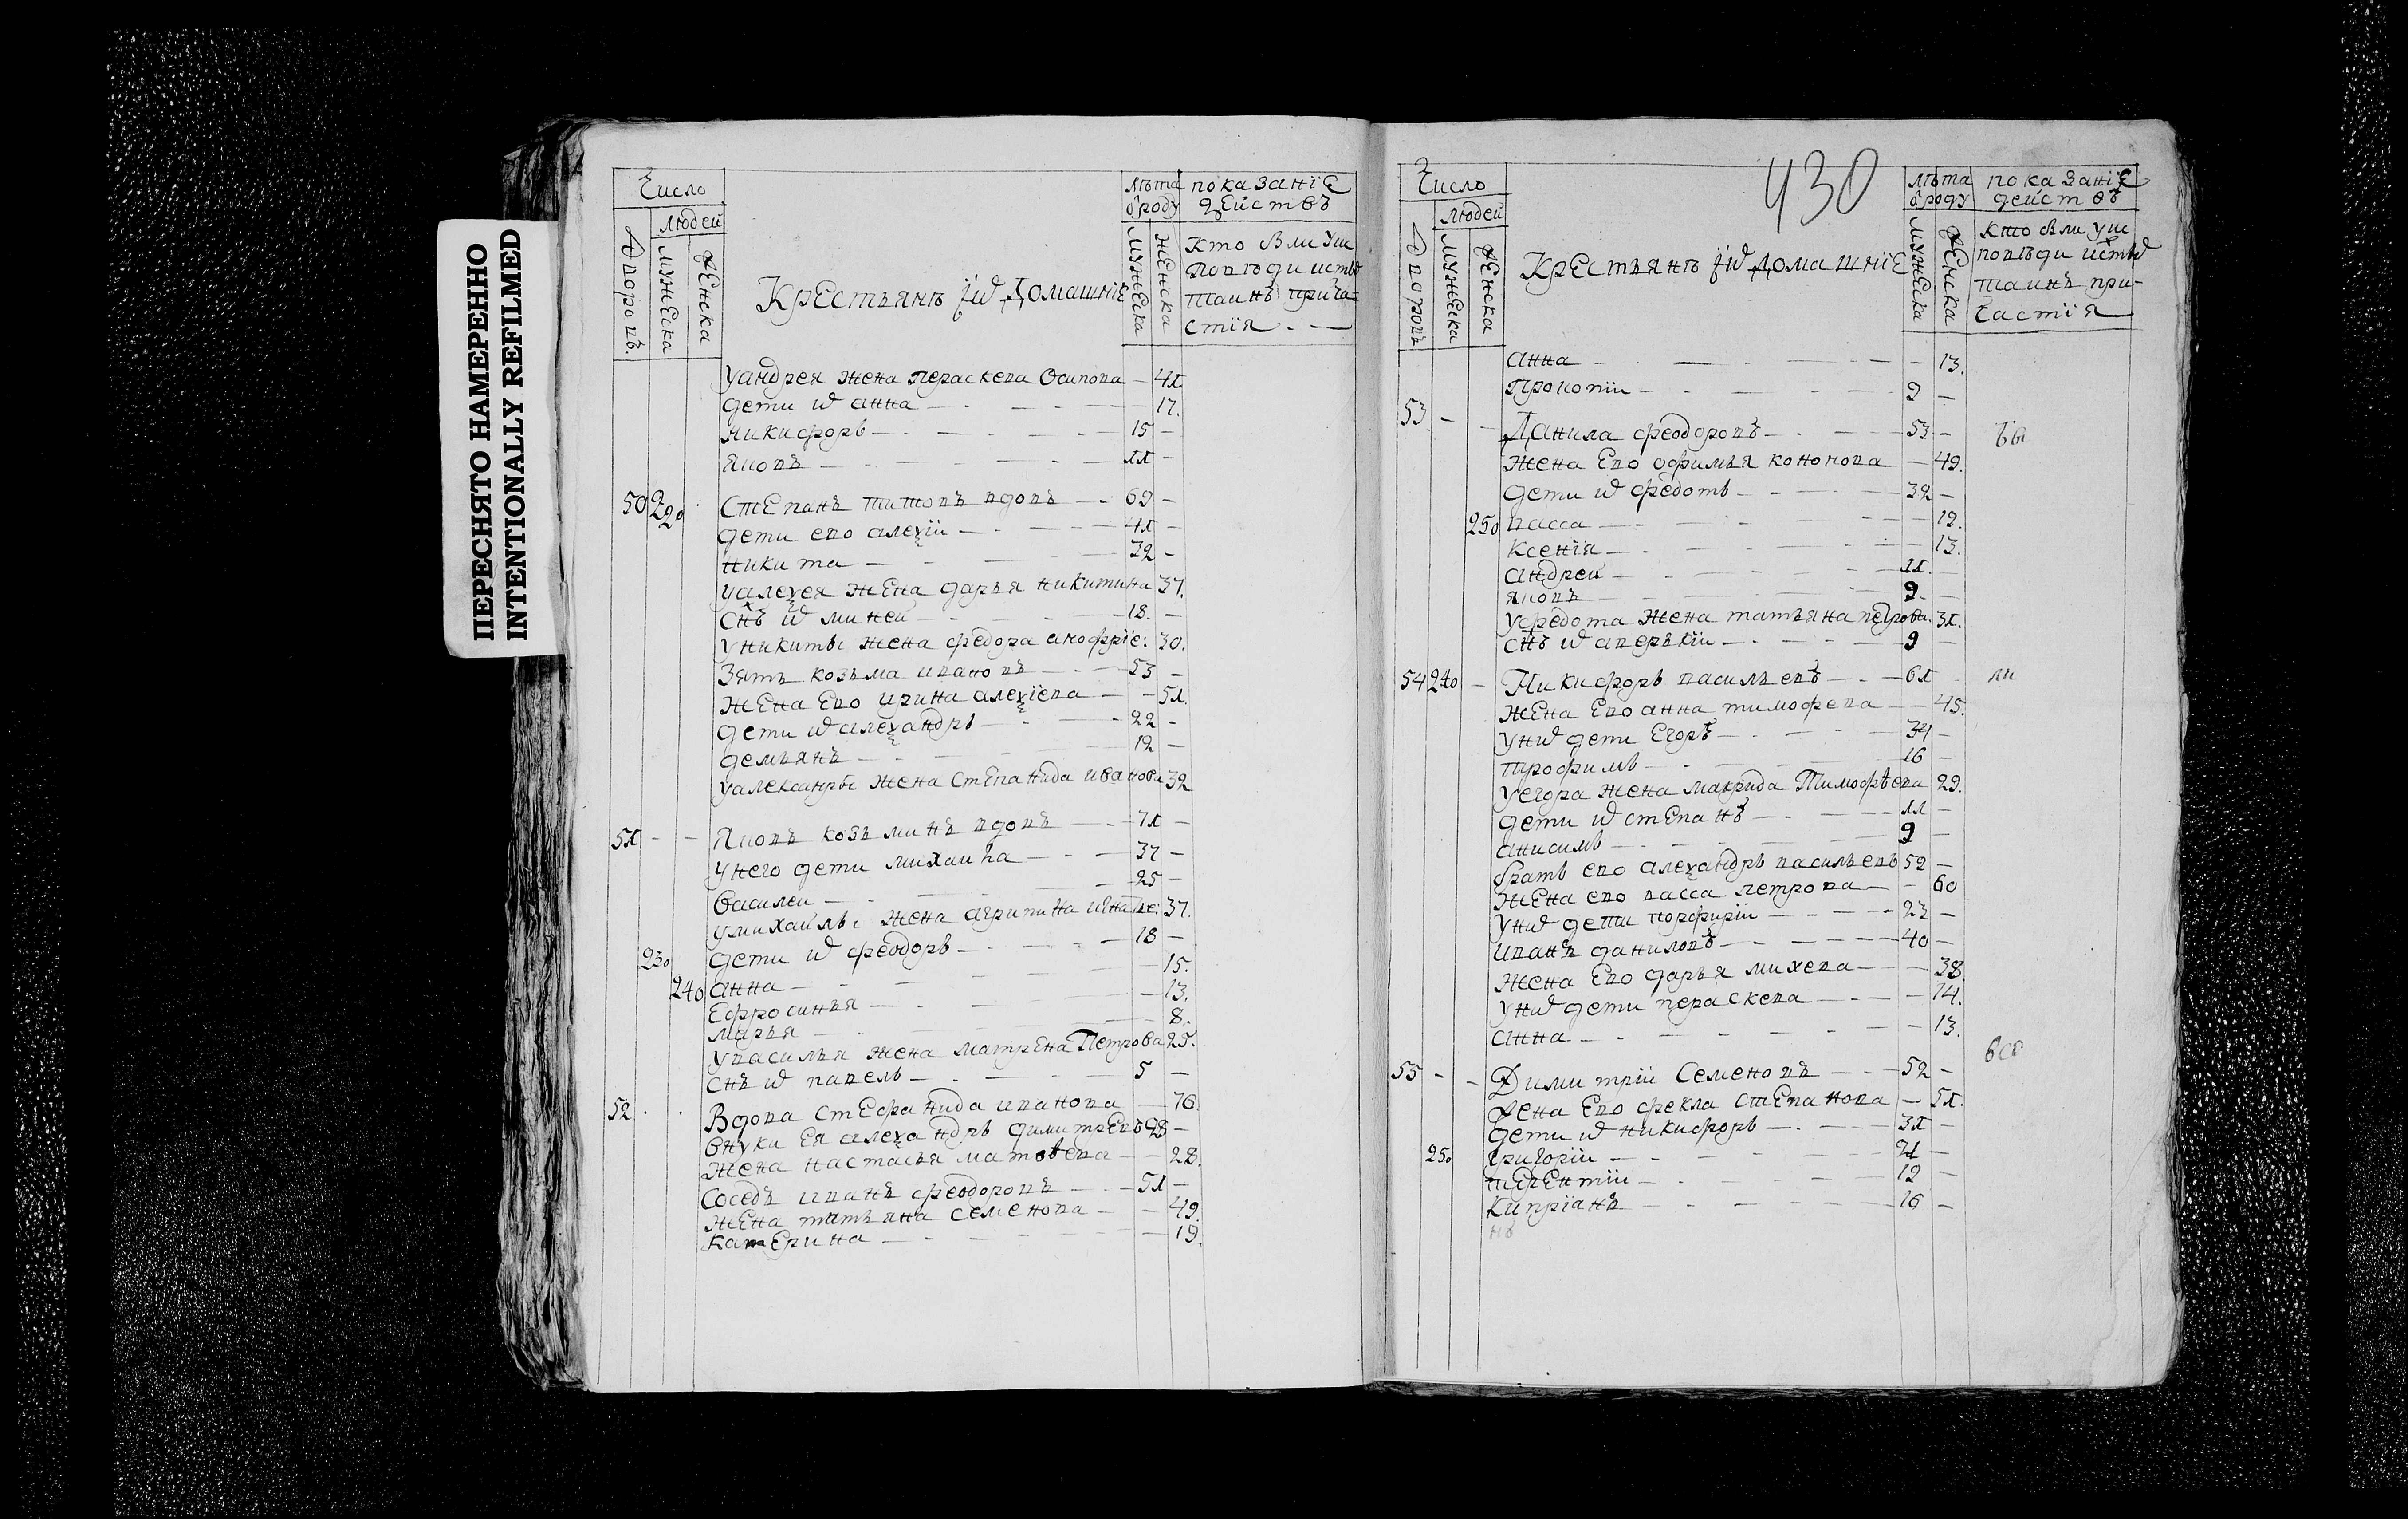 ПЕРЕСНЯТО НАМЕРЕННО
INTENTIONALLY REFILMED
Число
Людей
Дворовъ.
мужеска
женска
Крестьянъ и ихъ домашніе
лѣта
ѿ роду
мужеска
женска
показаніе
действъ
кто были у исповѣди и стыхъ
таинъ прича-
стія
У андрея жена пераскева Осипова — 41
дети их анна — 17.
Никифоръ — 15 —
Яковъ — 11 —
50 220 Степанъ титовъ вдовъ — 69 —
дети ево алеѯіи — 41 —
Никита — 32 —
У алеѯея жена дарья никитина 37.
снъ их миней — 18. —
У никиты жена федора анофріе: 30.
Зять козьма ивановъ — 53 —
Жена Ево ирина алеѯіева — 51.
дети их алеѯандръ — 22 —
демьянъ — 12 —
У алексанры жена степанида иванова 32
51 — — Яковъ козьминъ вдовъ — 71 —
У него дети михаила — 37 —
Василеи — 25 —
У михаилы жена агрипина игнатье: 37.
230 дети их феодоръ — 18 —
240 анна — 15.
Ефросинья — 13.
Марья — 8.
У василья жена матрена Петрова 25.
снъ их павель — 5 —
52 Вдова стефанида иванова — 76.
Внуки ея алеѯандръ димитревъ 28 —
Жена настасья матвева — 28.
Соседъ иванъ феодоровъ — 51 —
жена татьяна семенова — 49.
Катерина — 19.
430
Число
Людей
Дворовъ
мужеска
женска
Крестьянъ и ихъ домашніе
лѣта
ѿ роду
мужеска
женска
показаніе
действъ
кто были у исповѣди и стыхъ
таинъ при-
частія
анна — 13.
Прокопіи — 9 —
53 — — Данила феодоровъ — 53 — бы
Жена Ево офимья кононова — 49.
дети их федотъ — 32 —
250 васса — 19.
Ксенія — 13.
андрей — 11. —
Яковъ — 9. —
У федота жена татьяна петрова. 31.
снъ их аверькіи — 9 —
54 240 — Никифоръ васильевъ — 61 ли
Жена Ево анна тимофева — 45.
У них дети Егоръ — 34 —
трофимъ — 16 —
У егора жена макрида Тимофѣева 29.
дети их степанъ — 11 —
анисимъ — 9 —
братъ ево алеѯандръ васильевъ 52 —
Жена ево васса петрова — 60
У них дети порфиріи — 23 —
иванъ даниловъ — 40 —
Жена Ево дарья михева — 38.
У них дети пераскева — 14.
анна — 13.
всѣ
55 — — Димитріи Семеновъ — 52 —
Жена Ево фекла степанова — 51.
дети их никифоръ — 31 —
250 григоріи — 21 —
терентіи — 19 —
Кипріанъ — 16 —